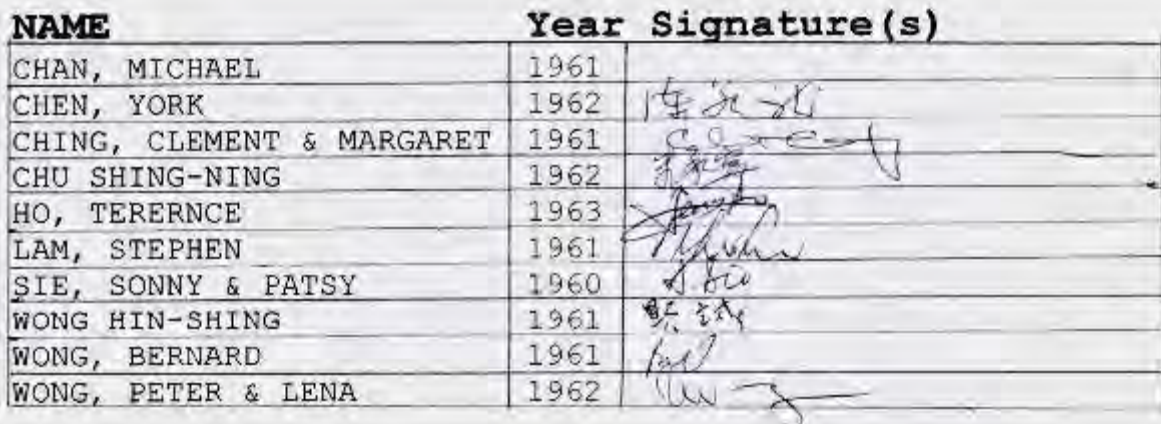 NAME Year Signature(s)
CHAN, MICHAEL 1961
CHEN, YORK 1962
CHING, CLEMENT & MARGARET 1961
CHU SHING-NING 1962
HO, TERERNCE 1963
LAM, STEPHEN 1961
SIE, SONNY & PATSY 1960 S. Sie
WONG HIN-SHING 1961
WONG, BERNARD 1961
WONG, PETER & LENA 1962